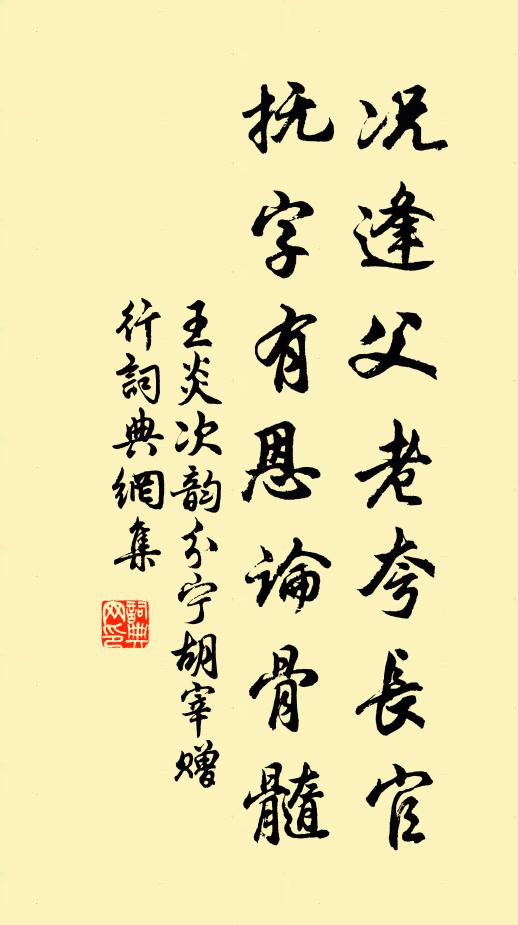 况逢父老夸長官
抚字有恩論骨髓
王炎次韵分宁胡宰赠
行詞典網集
詞典网印